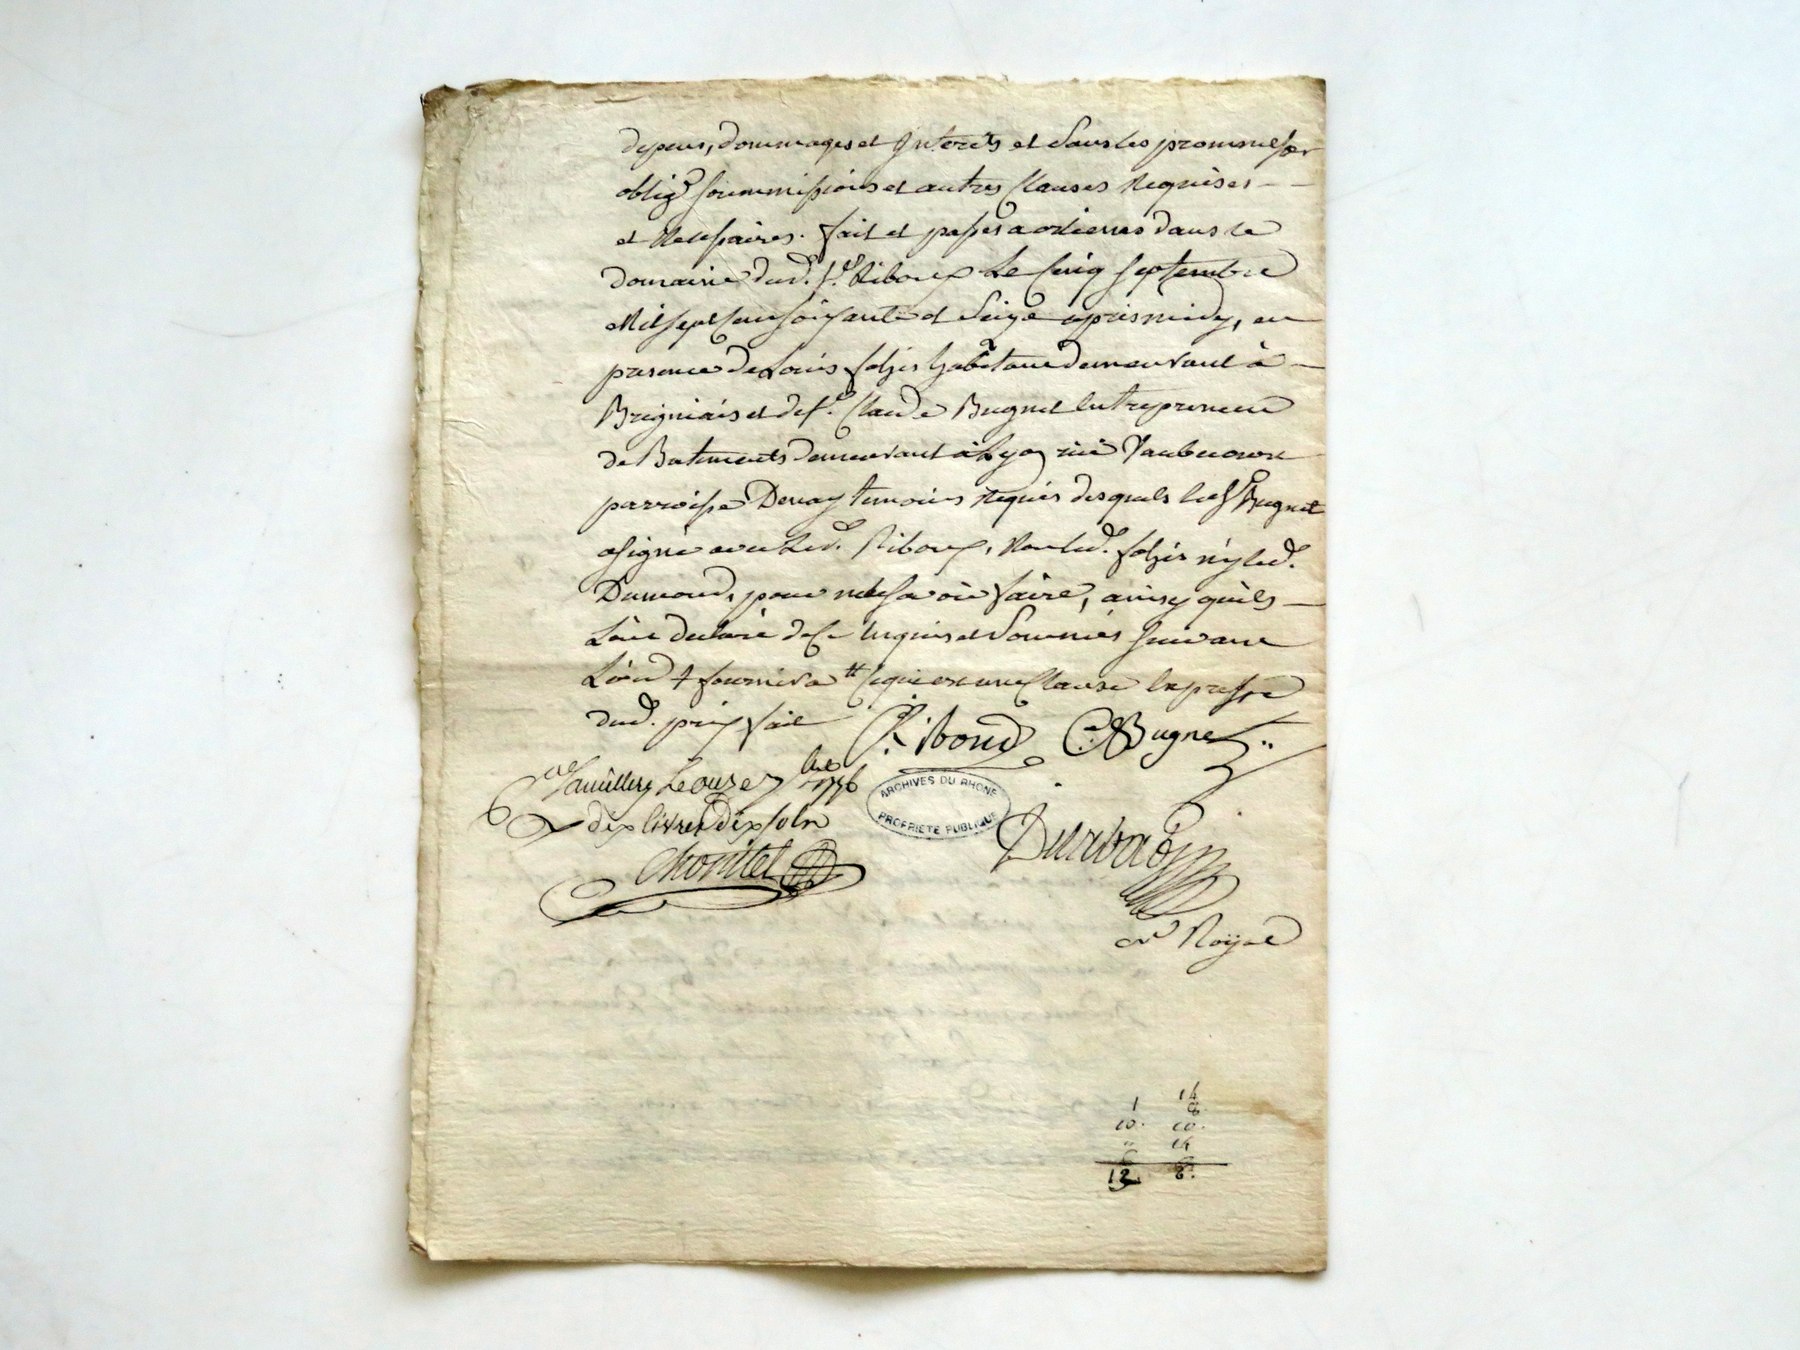 depens, dommages et Interets et sous les prommesses
oblig.^s soummissions et autres Clauses Requises
et Necessaires. fait et passé a orlienas dans le
domaine dud. s.^r Riboud Le Cinq septembre
Mil sept cens soixante et seize apres midy, en
presence de Louis habitant demeurant à
Brigniais et de s.^r Claude Bugnet Entrepreneur
de Batiments demeurant à Lyon rue Vaubecourt
parroisse Denay temoins Requis desquels led. s.^r Bugnet
a signé avec led. Riboud, Non led. ny led.
Dumond, pour ne le savoir faire, ainsy qu'ils
L'ont declaré de ce Enquis et Sommés suivant
L'ord. + fournira ^tt ce qui est une Clause Expresse
dud. prix fait
Riboud C. Bugnet
Lyon le onze 7^bre 1776
dix livres dix sols
Durand
N^re Royal
ARCHIVES DU RHONE
PROPRIETE PUBLIQUE
1 14
8.
10. 10.
" 14
12. 8.